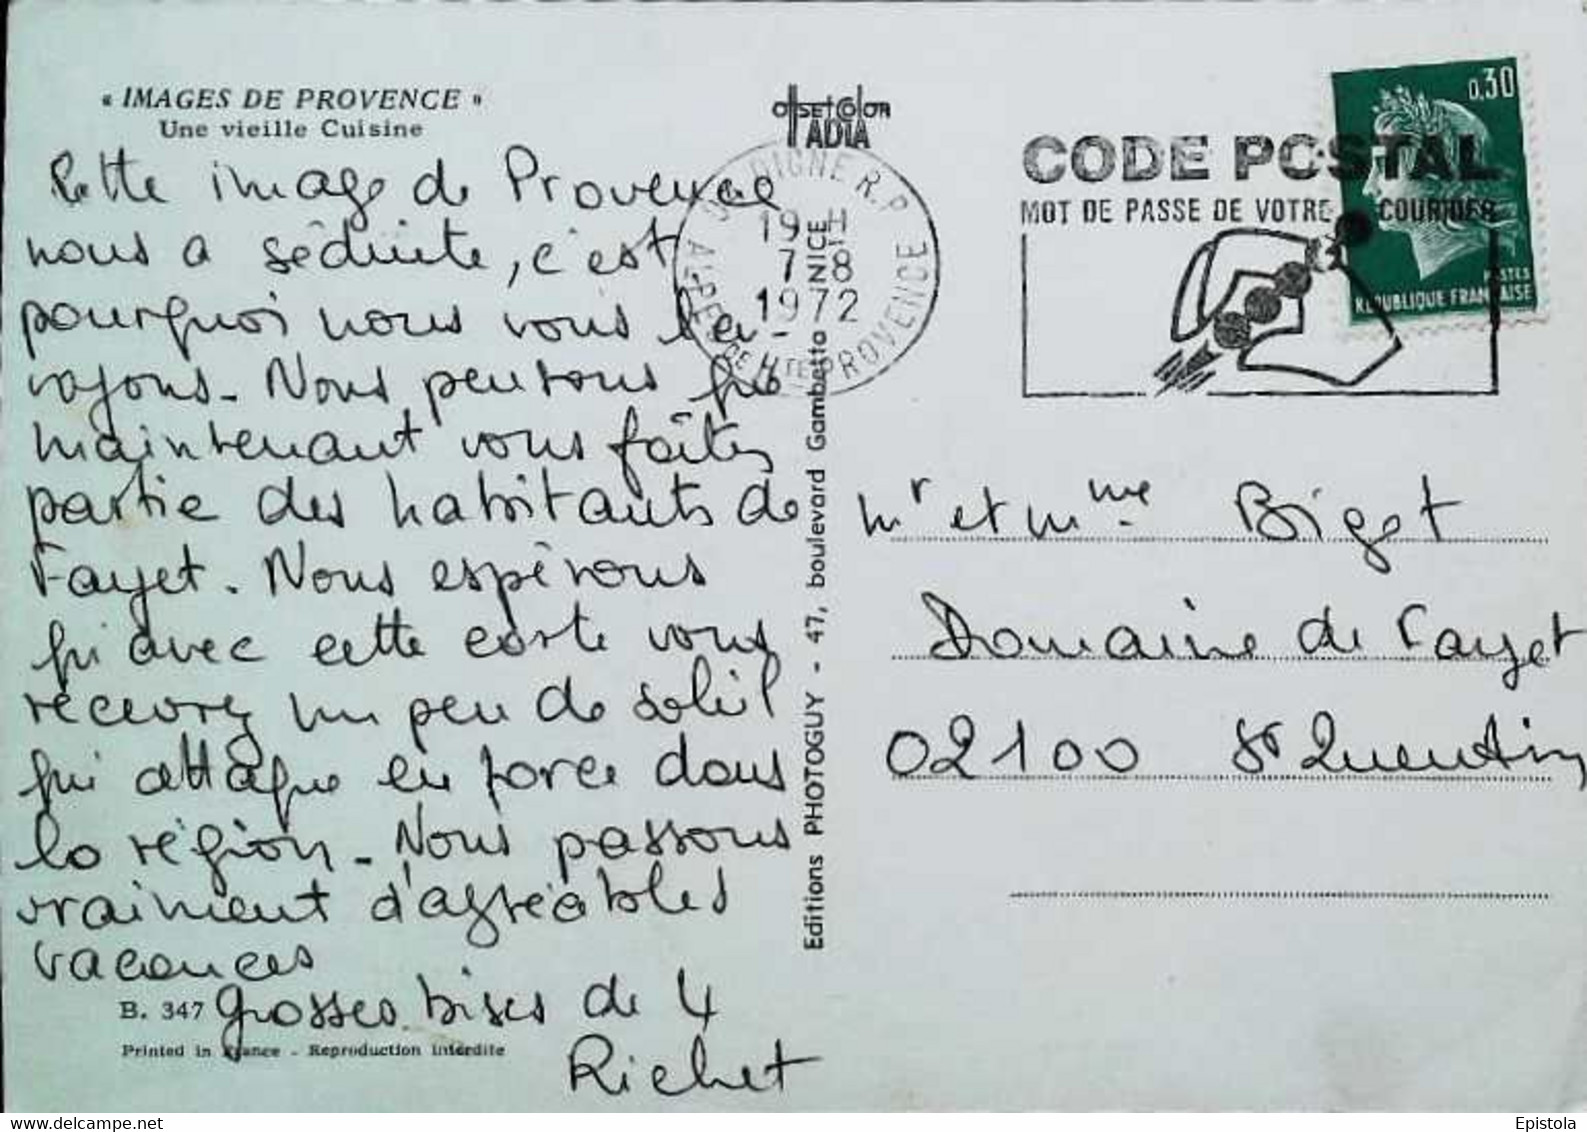 « IMAGES DE PROVENCE »
Une vieille Cuisine
Cette image de Provence
nous a séduite, c'est
pourquoi nous vous l'en-
voyons. Nous pensons que
maintenant vous faîtes
partie des habitants de
Fayet. Nous espérons
qu'avec cette carte vous
recevrez un peu de soleil
qui attaque en force dans
la région. Nous passons
vraiment d'agréables
vacances
B. 347
Grosses bises de 4
Richet
Printed in France - Reproduction interdite
OFFSETCOLOR
IADIA
Editions PHOTOGUY - 47, boulevard Gambetto NICE
DIGNE R.P.
19 H
7 - 8
1972
ALPES DE HTE PROVENCE
CODE POSTAL
MOT DE PASSE DE VOTRE COURRIER
0,30
POSTES
REPUBLIQUE FRANÇAISE
Mr et Mme Bigot
Domaine de Fayet
02100 St Quentin
delcampe.net
Epistola